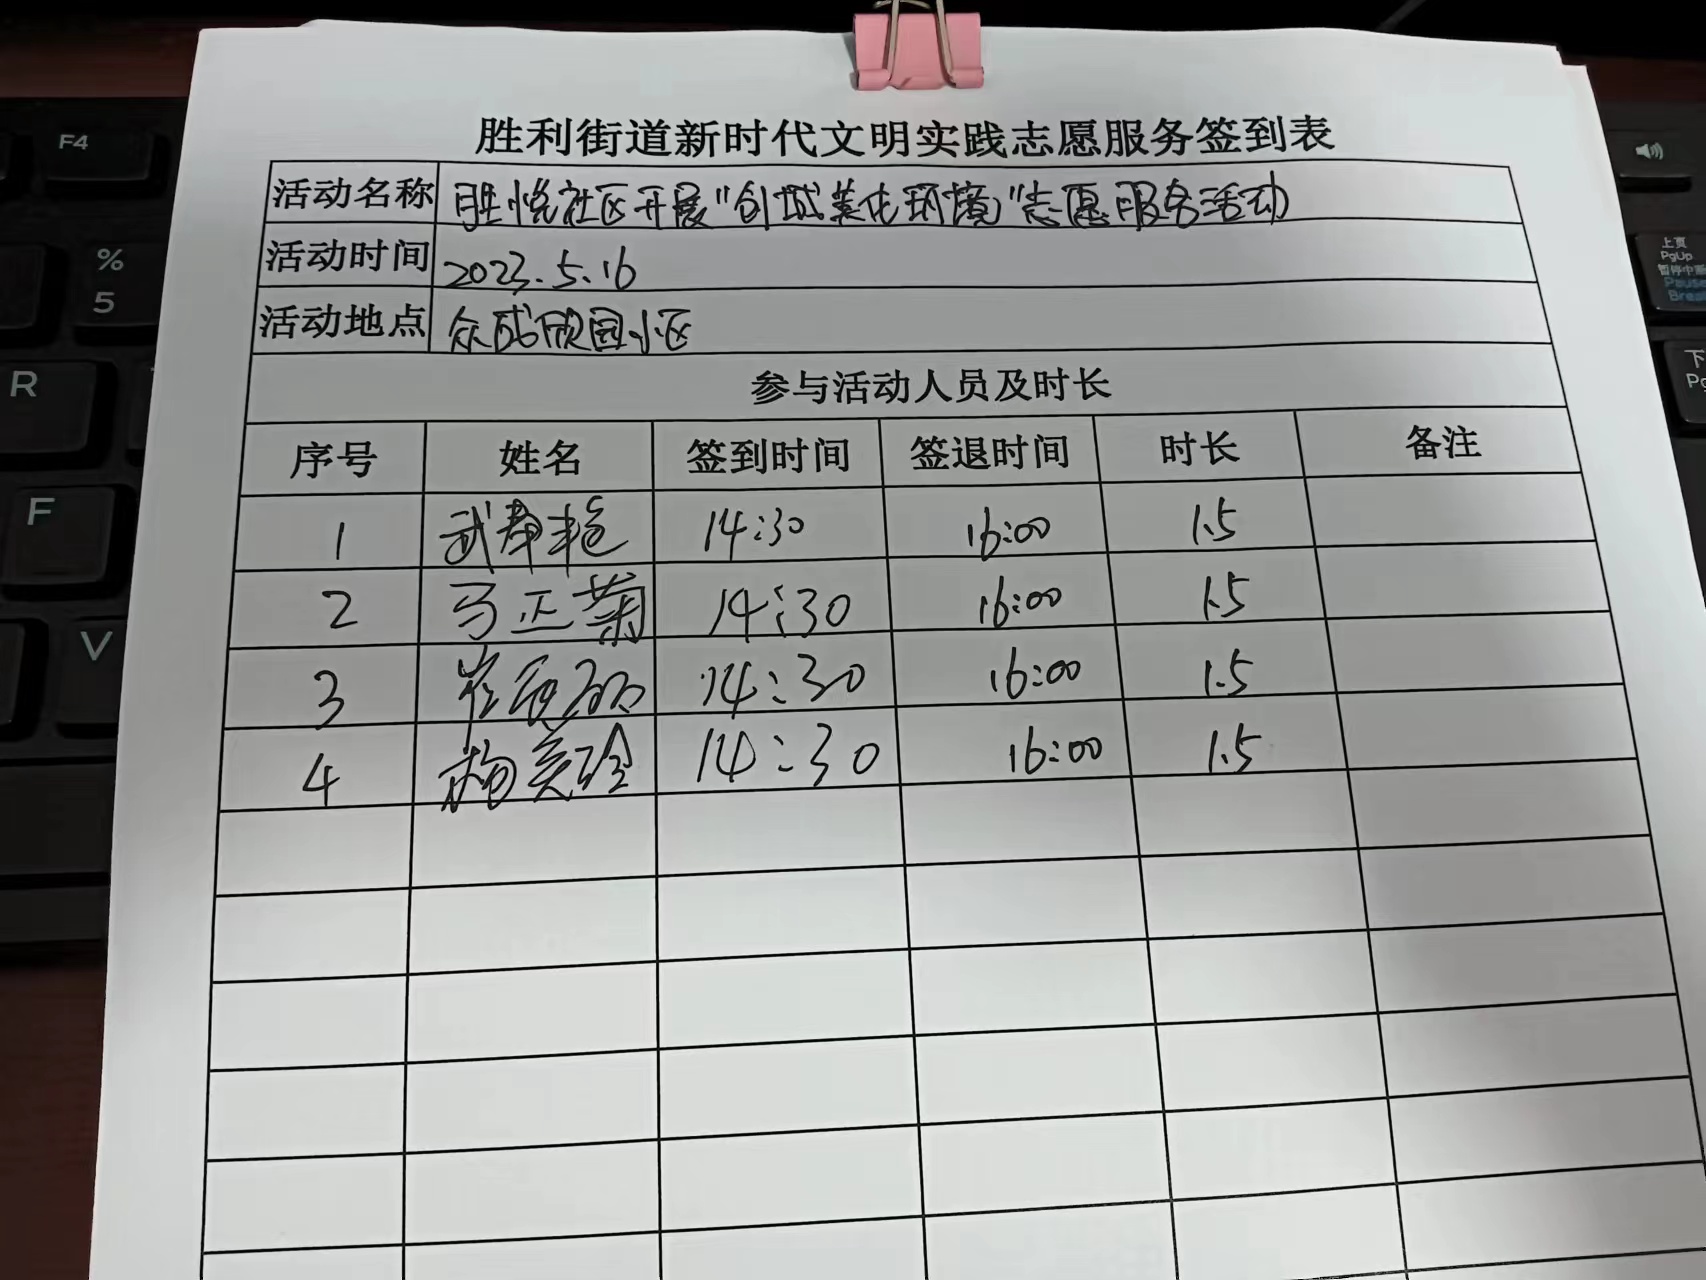 胜利街道新时代文明实践志愿服务签到表
活动名称 胜悦社区开展"创城美化环境"志愿服务活动
活动时间 2023.5.16
活动地点 众成欣园小区
参与活动人员及时长
序号 姓名 签到时间 签退时间 时长 备注
1 武春艳 14:30 16:00 1.5
2 马正菊 14:30 16:00 1.5
3 14:30 16:00 1.5
4 杨美玲 14:30 16:00 1.5
F4
%
5
R
F
V
上页
PgUp
暂停中断
Pause
Break
下